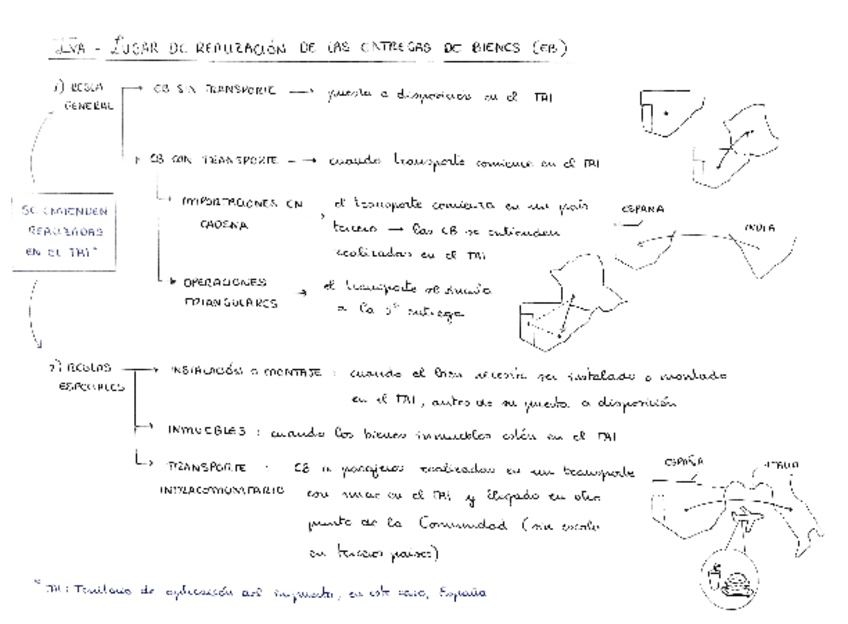 IVA - LUGAR DE REALIZACIÓN DE LAS ENTREGAS DE BIENES (EB)
1) REGLA GENERAL
EB SIN TRANSPORTE → puesta a disposición en el TAI
EB CON TRANSPORTE → cuando transporte comience en el TAI
IMPORTACIONES EN CADENA
el transporte comienza en un país
tercero → las EB se entienden
realizadas en el TAI
ESPAÑA
INDIA
OPERACIONES TRIANGULARES →
el transporte se vincula
a la 1ª entrega
SE ENTIENDEN
REALIZADAS
EN EL TAI*
2) REGLAS ESPECIALES
INSTALACIÓN O MONTAJE : cuando el bien necesite ser instalado o montado
en el TAI, antes de su puesta a disposición
INMUEBLES : cuando los bienes inmuebles estén en el TAI
TRANSPORTE INTRACOMUNITARIO :
EB a pasajeros realizadas en un transporte
con inicio en el TAI y llegada en otro
punto de la Comunidad (sin escala
en terceros países)
ESPAÑA
ITALIA
* TAI : Territorio de aplicación del impuesto, en este caso, España